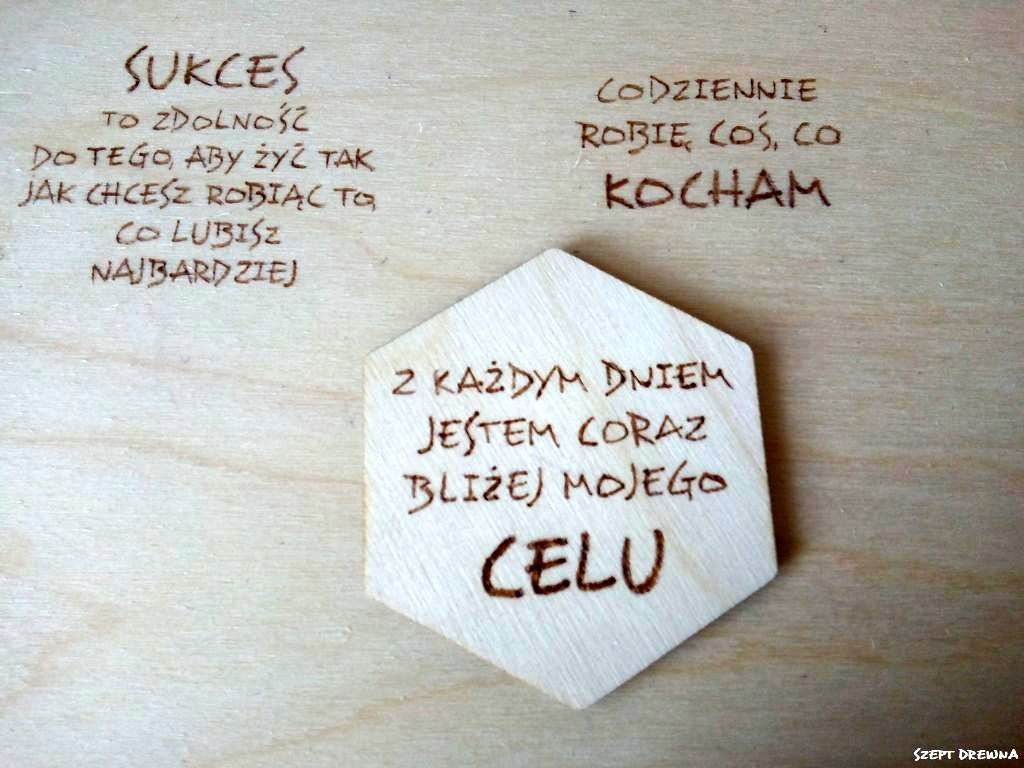 SUKCES
TO ZDOLNOŚĆ
DO TEGO, ABY ŻYĆ TAK
JAK CHCESZ ROBIĄC TO,
CO LUBISZ
NAJBARDZIEJ
CODZIENNIE
ROBIĘ COŚ, CO
KOCHAM
Z KAŻDYM DNIEM
JESTEM CORAZ
BLIŻEJ MOJEGO
CELU
SZEPT DREWNA